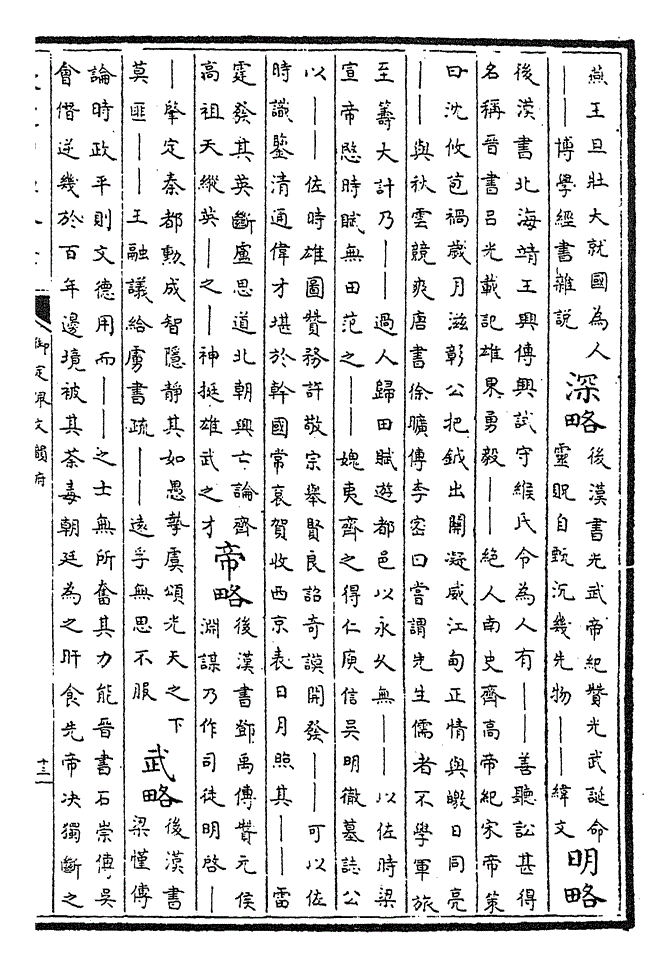 燕王旦壯大就國為人
——博學經書雜說
深略
後漢書光武帝紀贊光武誕命
靈貺自甄沉幾先物——緯文
明略
後漢書北海靖王興傳興試守緱氏令為人有——善聽訟甚得
名稱晉書呂光載記雄果勇毅——絕人南史齊高帝紀宋帝策
曰沈攸苞禍歲月滋彰公把鉞出關凝威江甸正情與皦日同亮
——與秋雲競爽唐書徐曠傳李密曰嘗謂先生儒者不學軍旅
至籌大計乃——過人歸田賦遊都邑以永久無——以佐時梁
宣帝愍時賦無田范之——媿夷齊之得仁庾信吳明徹墓誌公
以——佐時雄圖贊務許敬宗舉賢良詔奇謨開發——可以佐
時識鑒清通偉才堪於幹國常袞賀收西京表日月照其——雷
霆發其英斷盧思道北朝興亡論齊
高祖天縱英——之——神挺雄武之才
帝略
後漢書鄧禹傳贊元侯
淵謀乃作司徒明啓—
—肇定秦都勲成智隱靜其如愚摯虞頌光天之下
莫匪——王融議給虜書疏——遠孚無思不服
武略
後漢書
梁慬傳
論時政平則文德用而——之士無所奮其力能晉書石崇傳吳
會僭逆幾於百年邊境被其荼毒朝廷為之旰食先帝決獨斷之
御定佩文韻府
十三